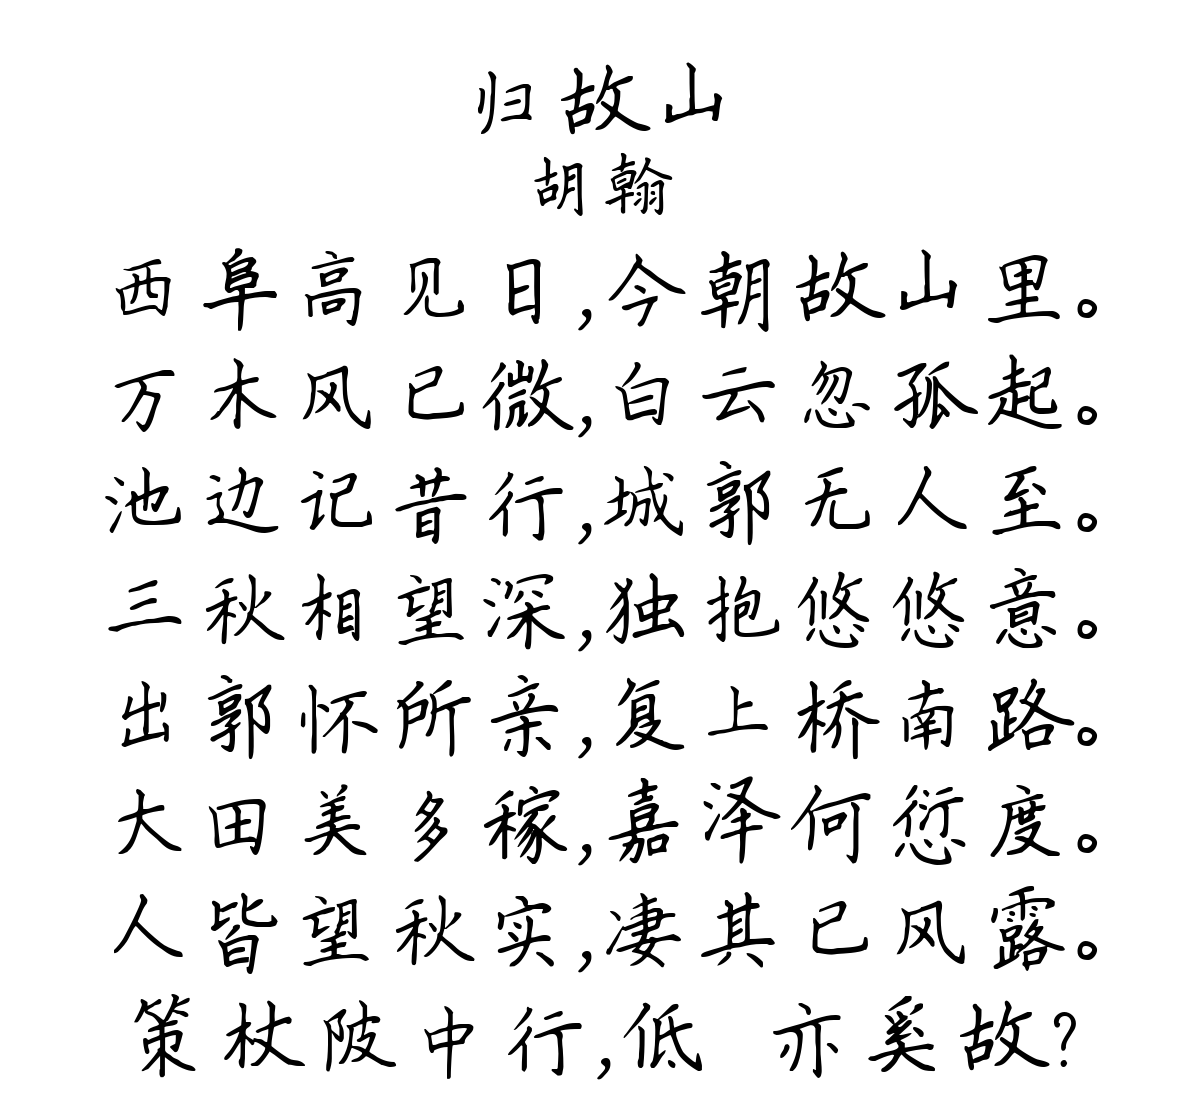 归故山
胡翰
西阜高见日,今朝故山里。
万木风已微,白云忽孤起。
池边记昔行,城郭无人至。
三秋相望深,独抱悠悠意。
出郭怀所亲,复上桥南路。
大田美多稼,嘉泽何愆度。
人皆望秋实,凄其已风露。
策杖陂中行,低 亦奚故?